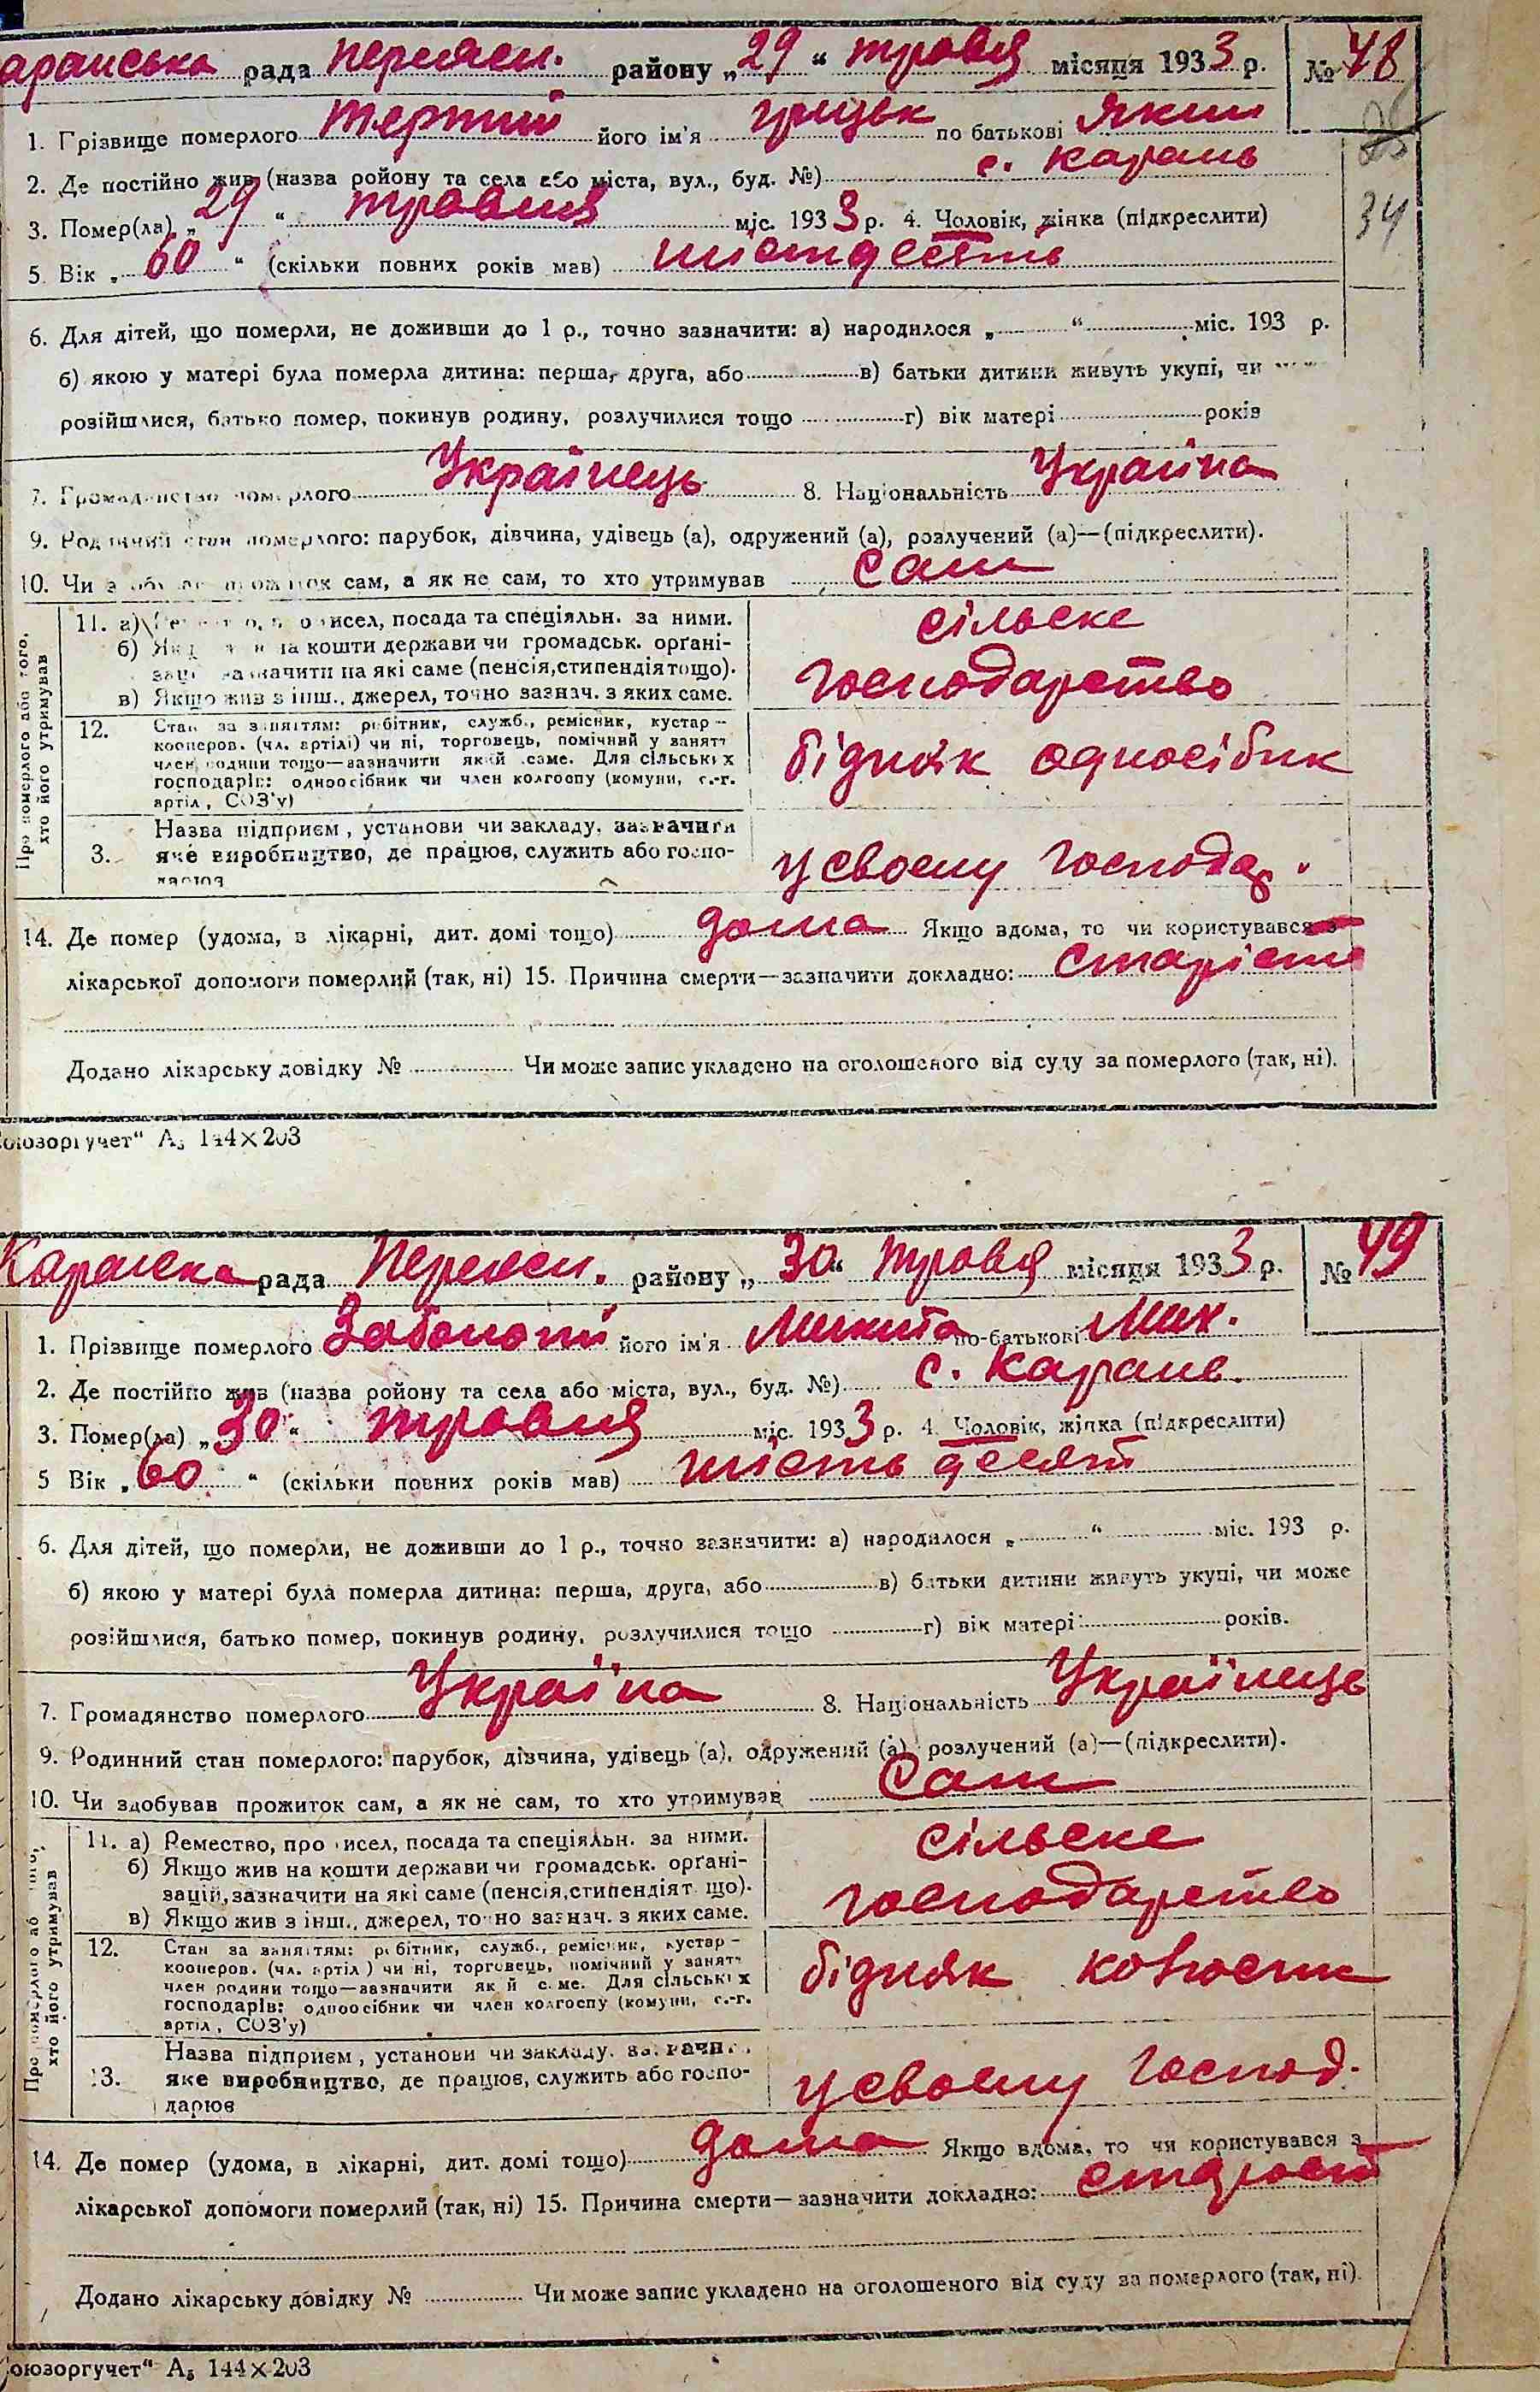 аранська рада Переясл. району „29“ травня місяця 1933 р. № 48
1. Прізвище померлого Тертий його ім'я Грицьк по батькові Яким
2. Де постійно жив (назва ройону та села або міста, вул., буд. №) с. Карань
3. Помер(ла) „29“ травня міс. 1933 р. 4. Чоловік, жінка (підкреслити)
34
5. Вік „60“ (скільки повних років мав) шістдесять
6. Для дітей, що померли, не доживши до 1 р., точно зазначити: а) народилося „ “ міс. 193 р.
б) якою у матері була померла дитина: перша, друга, або в) батьки дитини живуть укупі, чи
розійшлися, батько помер, покинув родину, розлучилися тощо г) вік матері років
7. Громадянство померлого Українець 8. Національність Україна
9. Родинний стан померлого: парубок, дівчина, удівець (а), одружений (а), розлучений (а)—(підкреслити).
10. Чи прожиток сам, а як не сам, то хто утримував Сам
Про померлого або того, хто його утримував
11. а) посада та спеціяльн. за ними.
б) на кошти держави чи громадськ. органі-
зації зазначити на які саме (пенсія, стипендія тощо).
в) Якщо жив з інш., джерел, точно зазнач. з яких саме.
сільске
господарство
12. Стан за заняттям: робітник, служб., ремісник, кустар –
кооперов. (чл. артілі) чи ні, торговець, помічний у занятт
член родини тощо—зазначити який саме. Для сільських
господарів: одноосібник чи член колгоспу (комуни, с.-г.
артіл, СОЗ'у)
бідняк односібник
3. Назва підприєм, установи чи закладу, зазначити
яке виробництво, де працює, служить або госпо-
дарює
у своему господар.
14. Де помер (удома, в лікарні, дит. домі тощо) дома Якщо вдома, то чи користувався з
лікарської допомоги померлий (так, ні) 15. Причина смерти—зазначити докладно: старість
Додано лікарську довідку № Чи може запис укладено на оголошеного від суду за померлого (так, ні).
оюзоргучет“ А₅ 144×203
Каранска рада Переясл. району „30“ травня місяця 1933 р. № 49
1. Прізвище померлого Заболотій його ім'я Микита по-батькові Мих.
2. Де постійно жив (назва ройону та села або міста, вул., буд. №) с. Карань.
3. Помер(ла) „30“ травня міс. 1933 р. 4. Чоловік, жінка (підкреслити)
5 Вік „60“ (скільки повних років мав) шість десят
6. Для дітей, що померли, не доживши до 1 р., точно зазначити: а) народилося „ “ міс. 193 р.
б) якою у матері була померла дитина: перша, друга, або в) батьки дитини живуть укупі, чи може
розійшлися, батько помер, покинув родину, розлучилися тощо г) вік матері років.
7. Громадянство померлого Україна 8. Національність Українець
9. Родинний стан померлого: парубок, дівчина, удівець (а), одружений (а) розлучений (а)—(підкреслити).
10. Чи здобував прожиток сам, а як не сам, то хто утримував Сам
Про померлого або того, хто його утримував
11. а) Ремество, промисел, посада та спеціяльн. за ними.
б) Якщо жив на кошти держави чи громадськ. органі-
зацій, зазначити на які саме (пенсія, стипендія т що).
в) Якщо жив з інш., джерел, точно зазнач. з яких саме.
сільске
господарство
12. Стан за заняттям: робітник, служб., ремісник, кустар –
кооперов. (чл. артіл) чи ні, торговець, помічний у занятт
член родини тощо—зазначити який саме. Для сільських
господарів: одноосібник чи член колгоспу (комуни, с.-г.
артіл, СОЗ'у)
бідняк
13. Назва підприєм, установи чи закладу, зазначи
яке виробництво, де працює, служить або госпо-
дарює
у своему господ.
14. Де помер (удома, в лікарні, дит. домі тощо) дома Якщо вдома, то чи користувався з
лікарської допомоги померлий (так, ні) 15. Причина смерти—зазначити докладно: старост
Додано лікарську довідку № Чи може запис укладено на оголошеного від суду за померлого (так, ні).
оюзоргучет“ А₅ 144×203